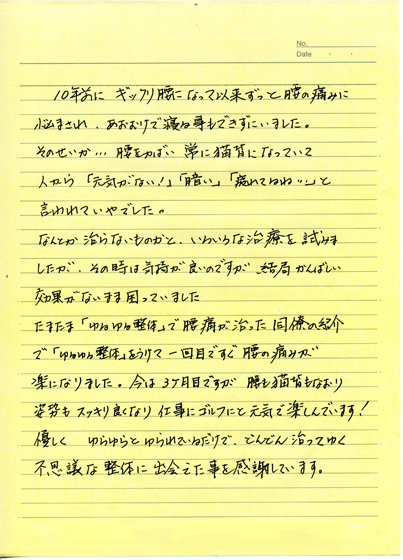 No.
Date ・ ・
10年前に ギックリ腰になって以来ずっと腰の痛みに
悩まされ、あおむけで寝る事もできずにいました。
そのせいか… 腰をかばい 常に猫背になっていて
人から「元気がない!」「暗い」「疲れてるね…」と
言われていやでした。
なんとか治らないものかと、いろいろな治療を試みま
したが、その時は気持が良いのですが 結局かんばしい
効果がないまま困っていました
たまたま「ゆるゆる整体」で腰痛が治った同僚の紹介
で「ゆるゆる整体」をうけて一回目ですぐ腰の痛みが
楽になりました。今は3ヶ月目ですが 腰も猫背もなおり
姿勢もスッキリ良くなり仕事にゴルフにと元気で楽しんでいます!
優しく ゆらゆらとゆられているだけで、どんどん治ってゆく
不思議な整体に出会えた事を感謝しています。